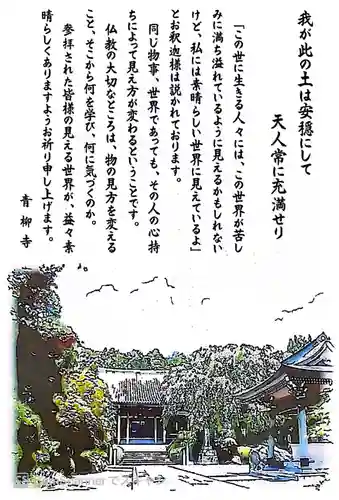 我が此の土は安穏にして
天人常に充満せり
「この世に生きる人々には、この世界が苦し
みに満ち溢れているように見えるかもしれない
けど、私には素晴らしい世界に見えているよ」
とお釈迦様は説かれております。
同じ物事、世界であっても、その人の心持
ちによって見え方が変わるということです。
仏教の大切なところは、物の見方を変える
こと、そこから何を学び、何に気づくのか。
参拝された皆様の見える世界が、益々素
晴らしくありますようお祈り申し上げます。
青柳寺
でスキャン